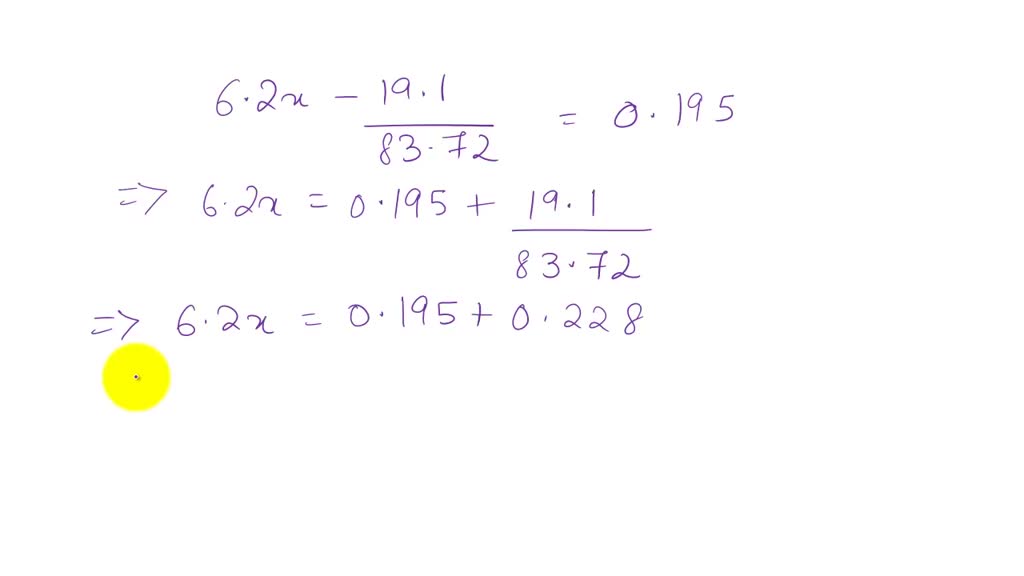 6.2x - 19.1/83.72 = 0.195
=> 6.2x = 0.195 + 19.1/83.72
=> 6.2x = 0.195 + 0.228